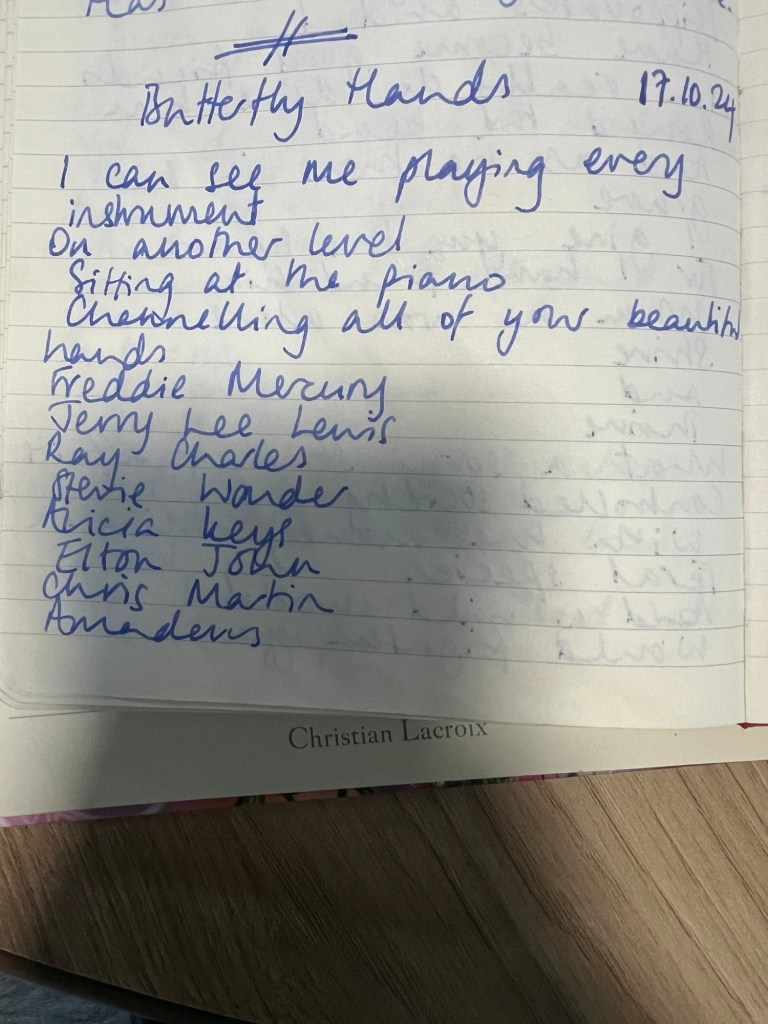 Butterfly Hands 17.10.24
I can see me playing every
instrument
On another level
Sitting at the piano
Channelling all of your beautiful
hands
Freddie Mercury
Jerry Lee Lewis
Ray Charles
Stevie Wonder
Alicia Keys
Elton John
Chris Martin
Amadeus
Christian Lacroix